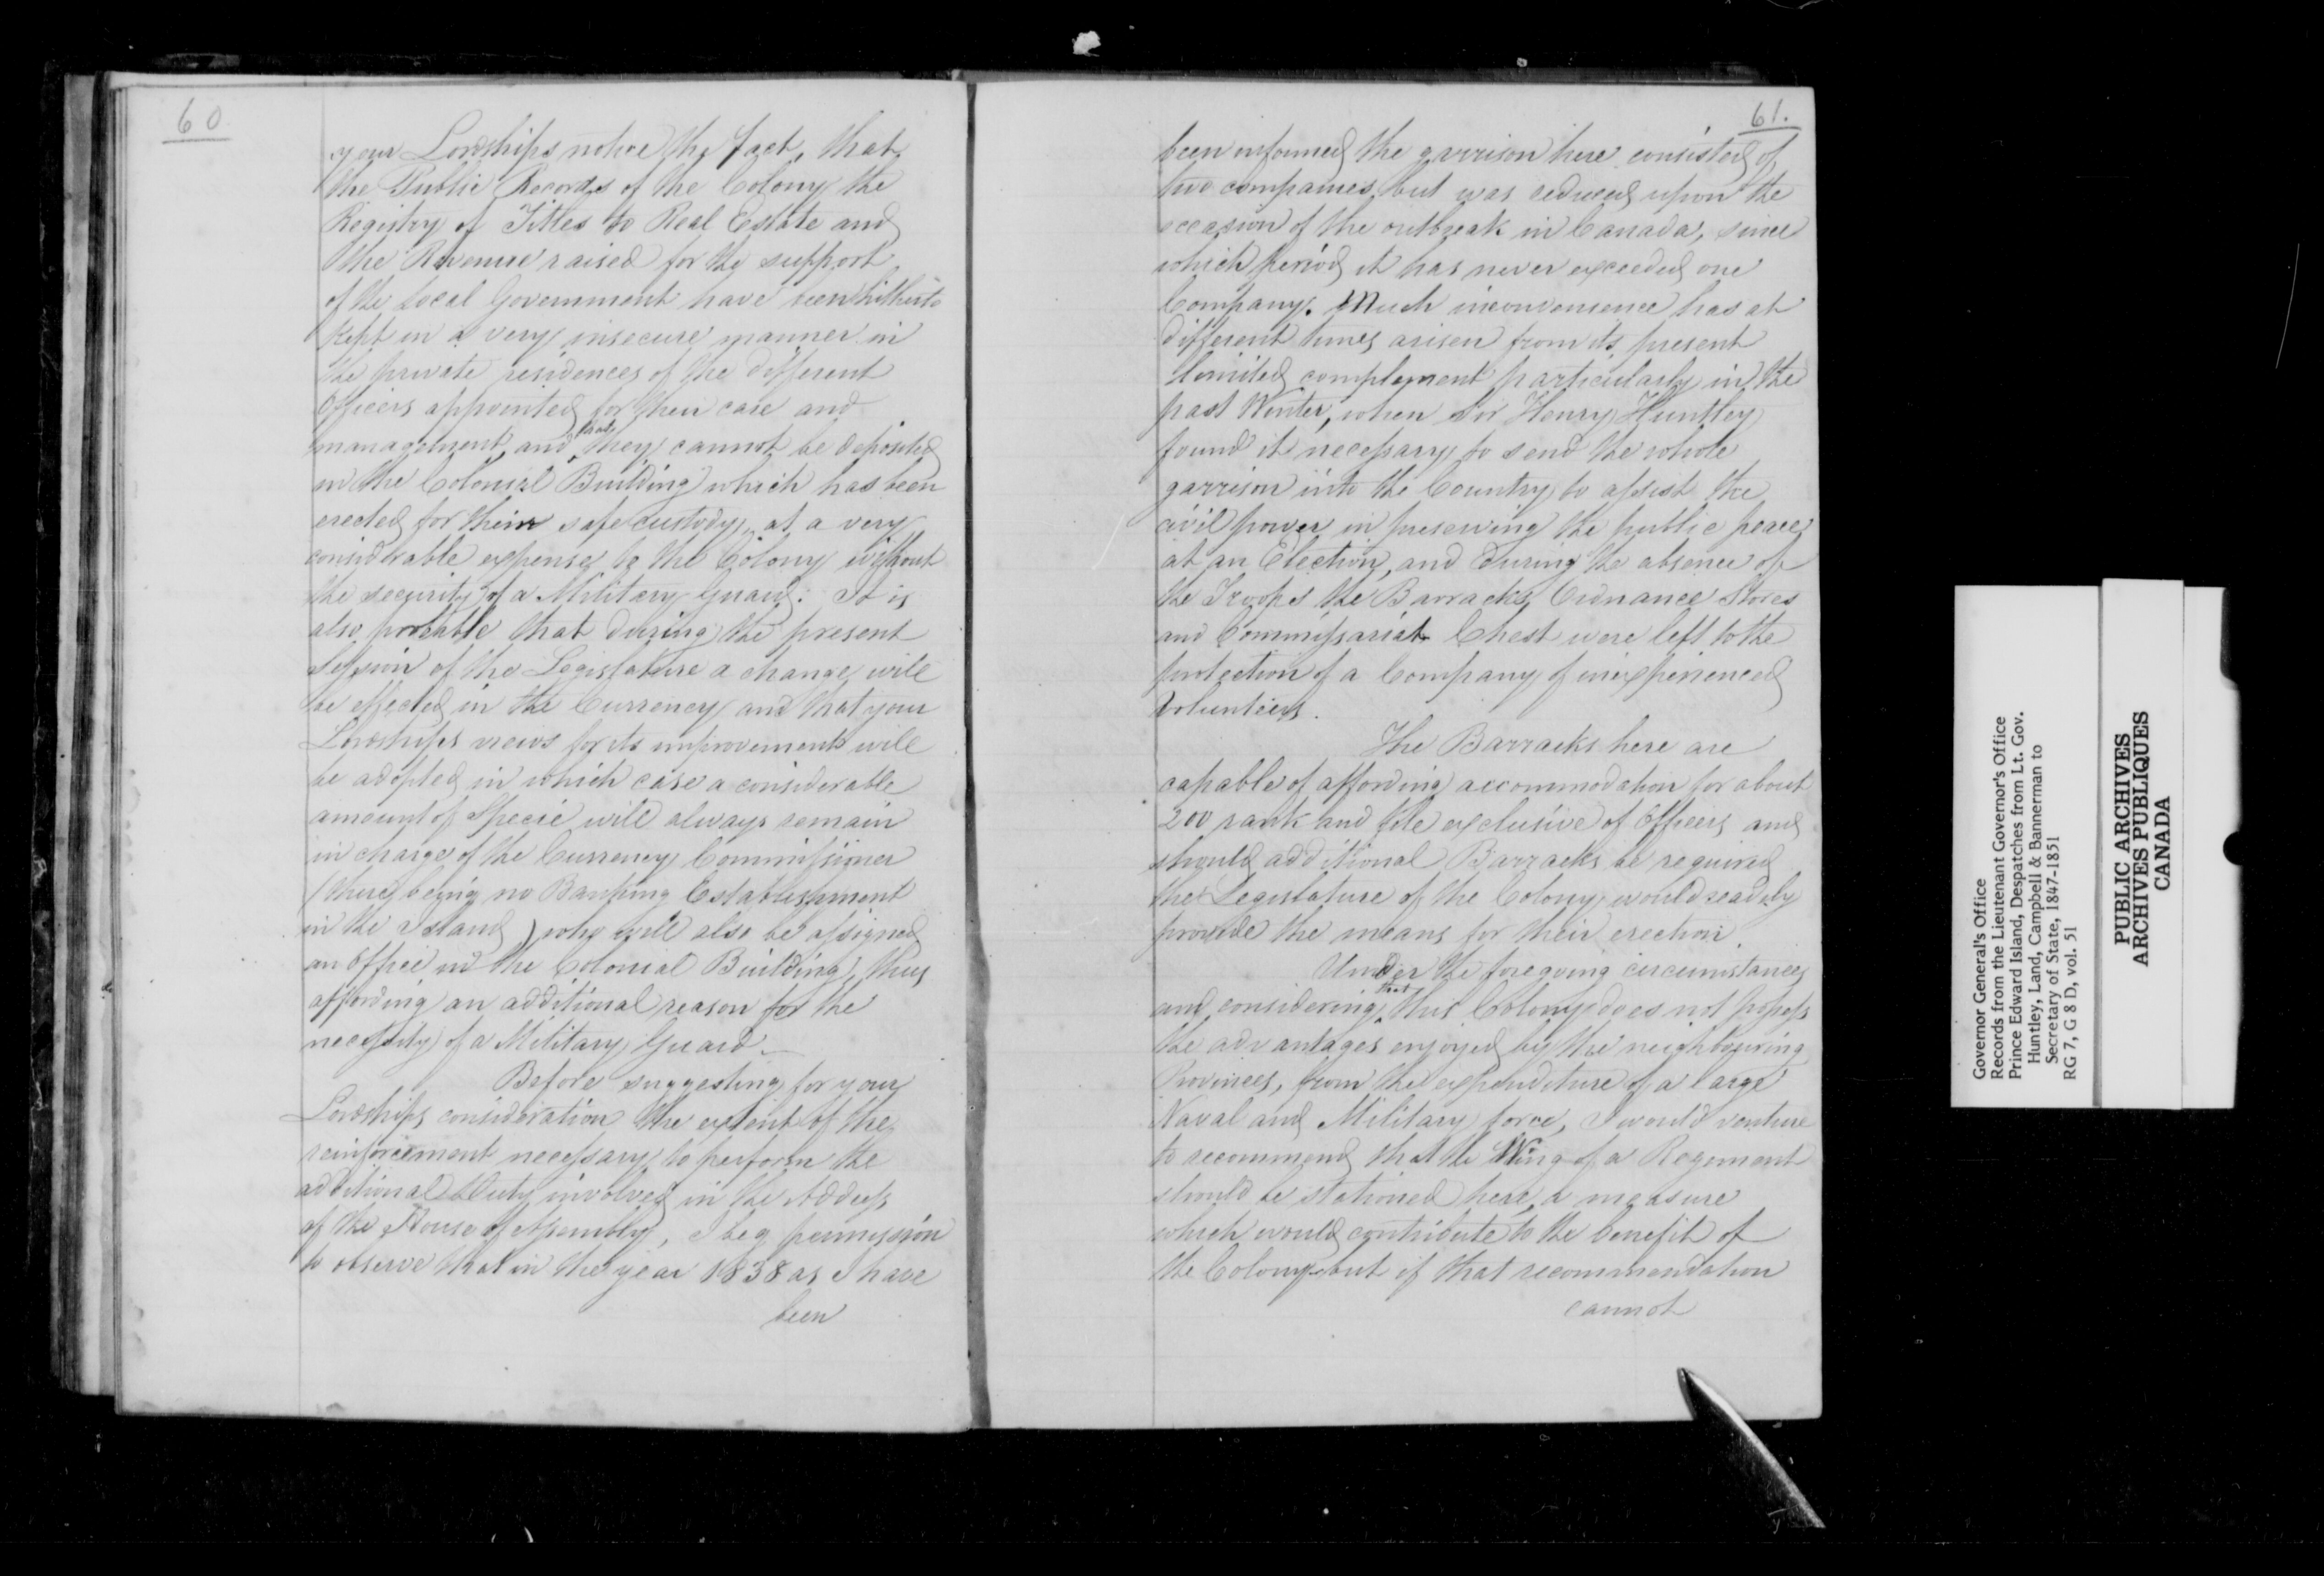 60
your Lordships notice the fact, that
the Public Records of the Colony the
Registry of Titles to Real Estate and
the Revenue raised for the support
of the Local Government have been hitherto
kept in a very insecure manner in
the private residences of the different
Officers appointed for their care and
management, and that they cannot be deposited
in the Colonial Building which has been
erected for their safe custody, at a very
considerable expense to the Colony without
the security of a Military Guard: It is
also probable that during the present
Session of the Legislature a change will
be effected in the Currency and that your
Lordships views for its improvement will
be adopted in which case a considerable
amount of Specie will always remain
in charge of the Currency Commissioner
(there being no Banking Establishment
in the Island) who will also be assigned
an Office in the Colonial Building, thus
affording an additional reason for the
necessity of a Military Guard.
Before suggesting for your
Lordships consideration the extent of the
reinforcement necessary to perform the
additional Duty involved in the Address
of the House of Assembly, I beg permission
to observe that in the year 1838 as I have
been
61.
been informed the garrison here consisted of
two companies but was reduced upon the
occasion of the outbreak in Canada, since
which period it has never exceeded one
Company. Much inconvenience has at
different times arisen from its present
limited complement particularly in the
past Winter, when Sir Henry Huntley
found it necessary to send the whole
garrison into the Country to assist the
civil power in preserving the public peace
at an Election, and during the absence of
the Troops the Barracks Ordnance Stores
and Commissariat Chest were left to the
protection of a Company of inexperienced
Volunteers.
The Barracks here are
capable of affording accommodation for about
200 rank and file exclusive of Officers and
should additional Barracks be required
the Legislature of the Colony would readily
provide the means for their erection.
Under the foregoing circumstances
and considering that this Colony does not possess
the advantages enjoyed by the neighbouring
Provinces, from the expenditure of a large
Naval and Military force, I would venture
to recommend that the Wing of a Regiment
should be stationed here, a measure
which would contribute to the benefit of
the Colony but if that recommendation
cannot
Governor General's Office
Records from the Lieutenant Governor's Office
Prince Edward Island, Despatches from Lt. Gov.
Huntley, Land, Campbell & Bannerman to
Secretary of State, 1847-1851
RG 7, G 8 D, vol. 51
PUBLIC ARCHIVES
ARCHIVES PUBLIQUES
CANADA